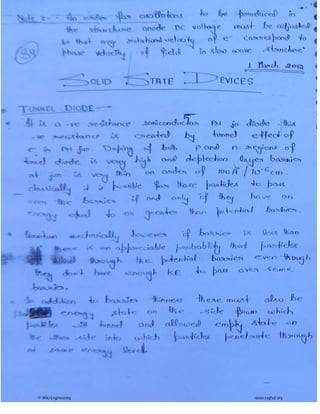 Note 2:- In order for oscillations to be produced in
the structure anode DC voltage must be adjusted
so that avg rotational velocity of e⁻ correspond to
phase velocity of field in slow wave structure
34
1 March 2012
SOLID STATE DEVICES
• TUNNEL DIODE —
• It is a -ve resistance semiconductor PN jn diode. this
-ve resistance is created by tunnel effect of
e⁻ in PN jn. Doping of both P and n-regions of
tunnel diode is very high and depletion layer barrier
at jn is very thin on order of 100 A° / 10⁻⁶ cm.
classically it is possible for those particles to pass
over the barrier if and only if they have an
energy equal to or greater than potential barrier.
• Quantum mechanically however if barrier is less than
there is an appreciable probability that particles
through the potential barrier even though
they don't have enough KE to pass over same
barrier.
• In addition to barrier thinness there must also be
energy state on the side from which
particles will tunnel and allowed empty state on
the other side into which particles penetrate through
at same energy level.
© Wiki Engineering
www.raghul.org